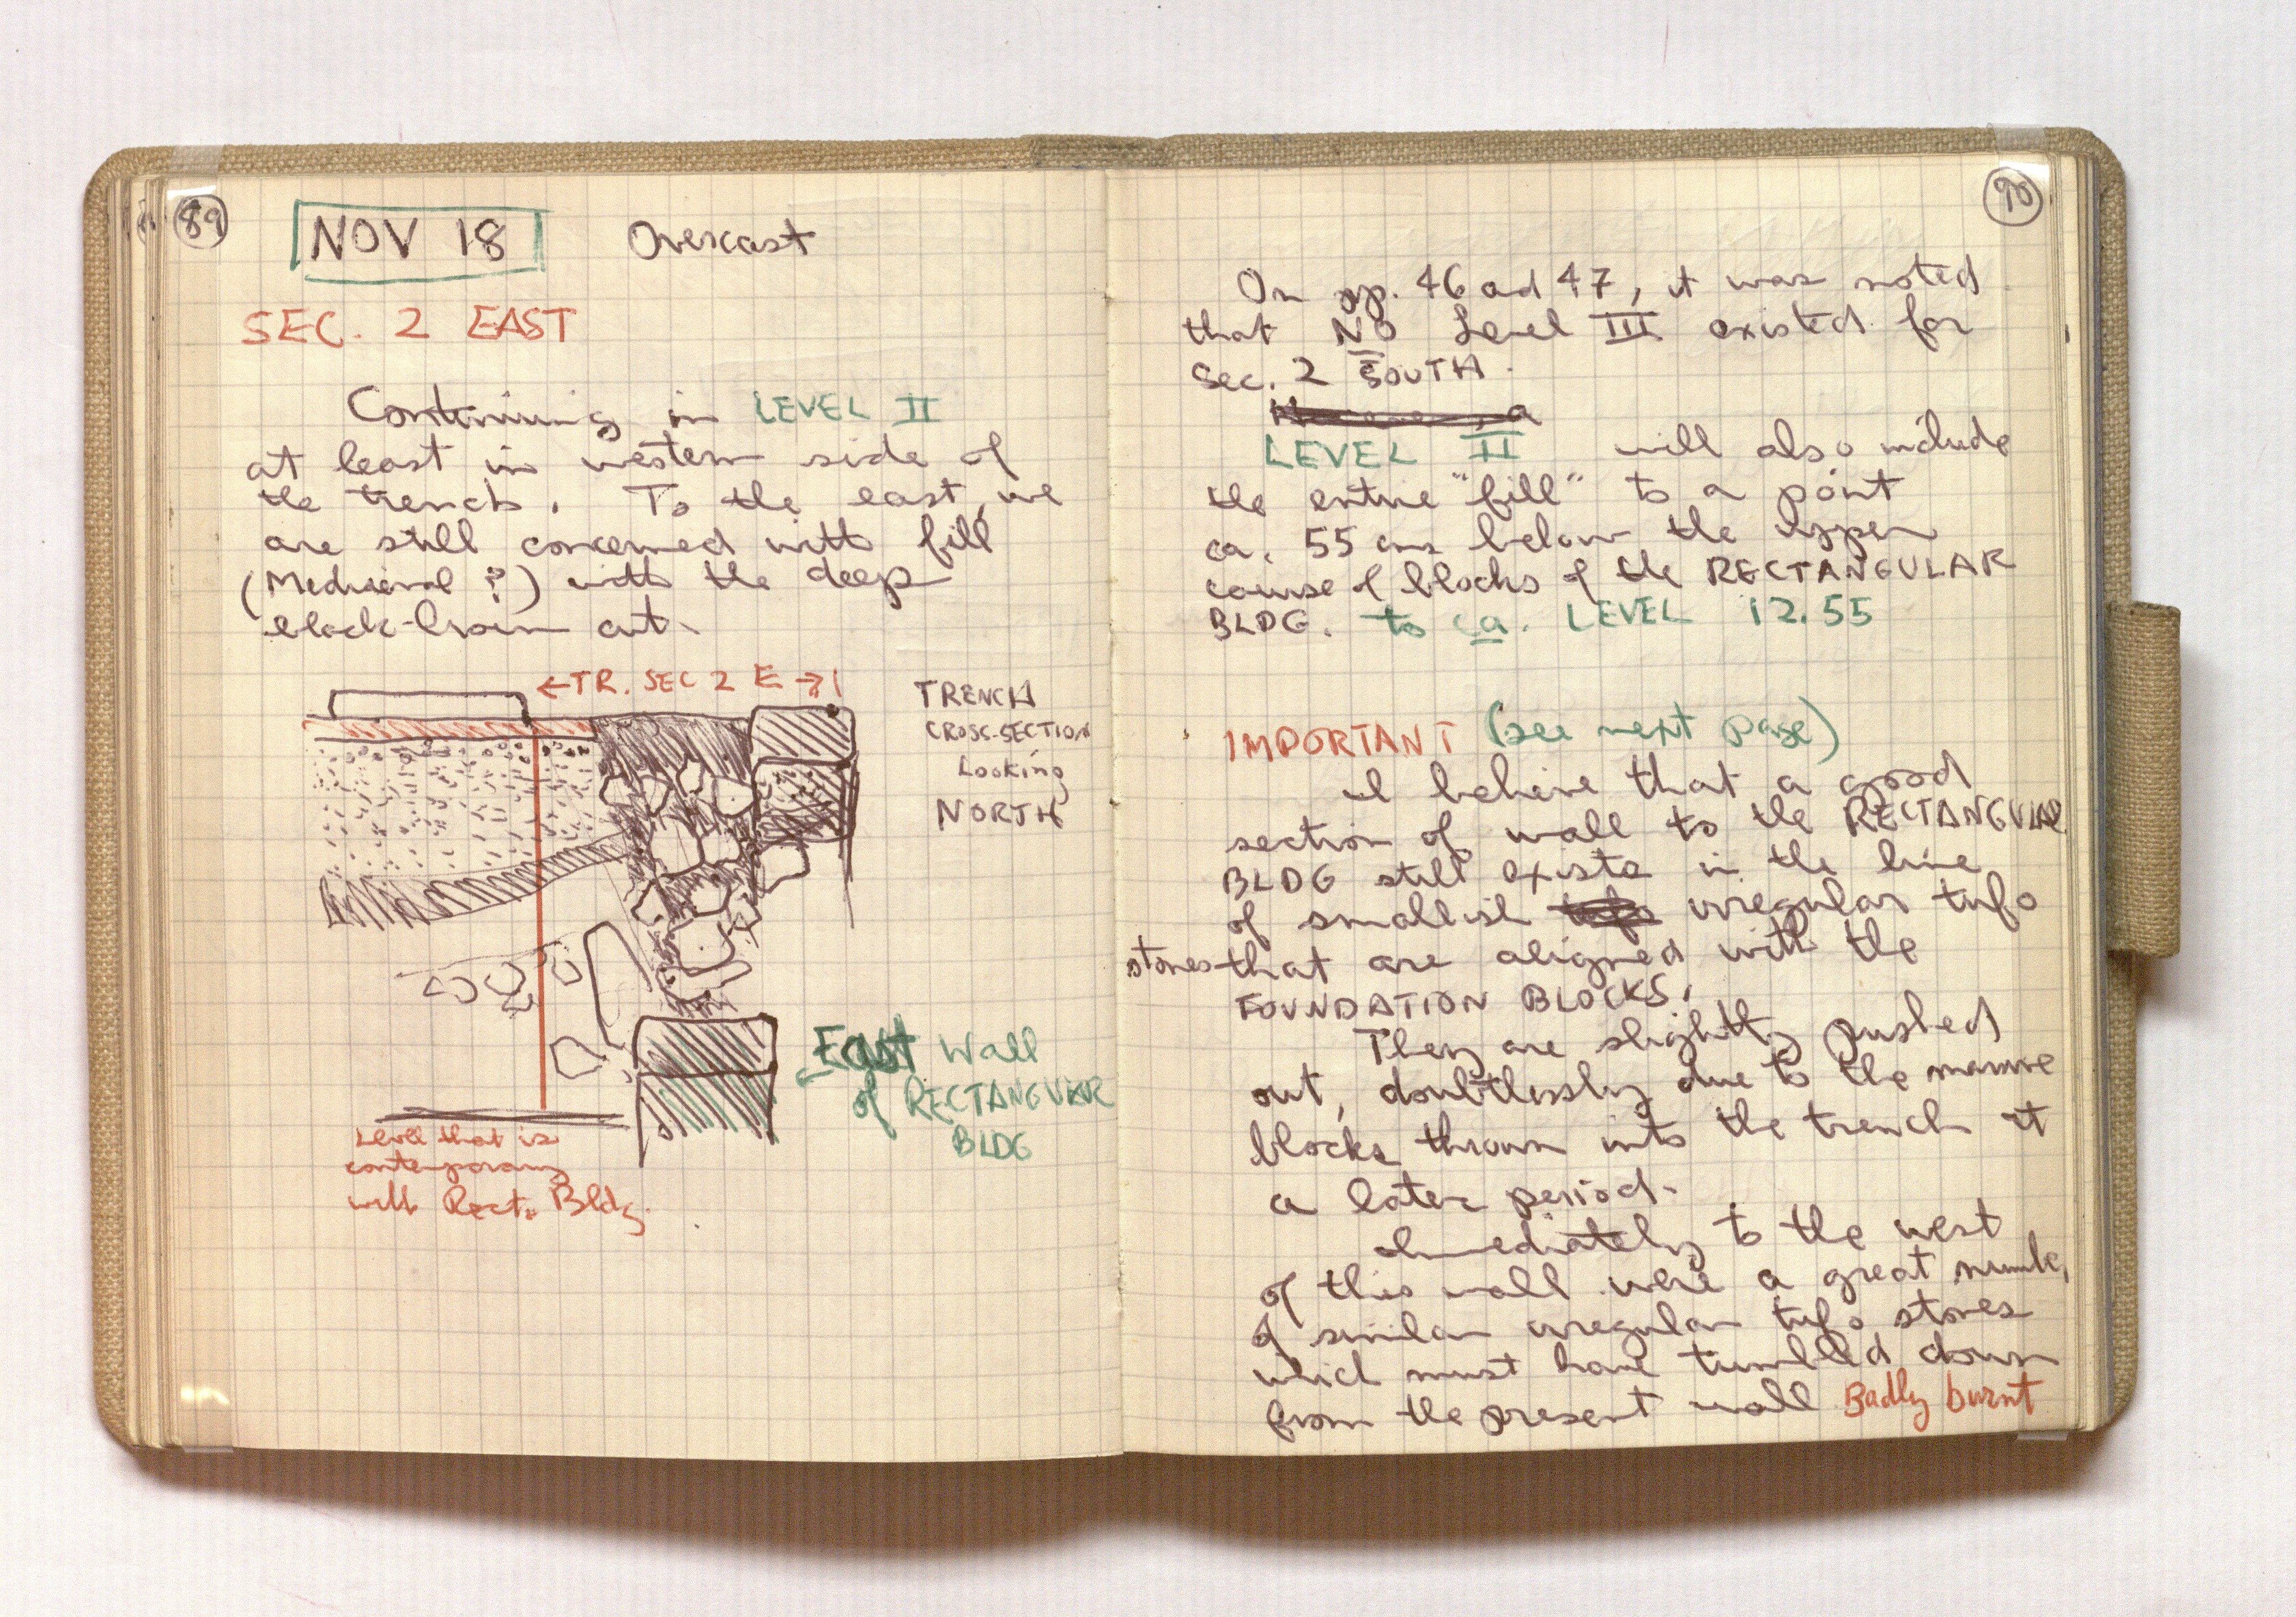 89
NOV 18 Overcast
SEC. 2 EAST
Continuing in LEVEL II
at least in western side of
the trench. To the east, we
are still concerned with fill
(Mediaeval ?) with the deep
black-brown cut.
←TR. SEC 2 E→
TRENCH
CROSS-SECTION
Looking
NORTH
East Wall
of RECTANGULAR
BLDG
Level that is
contemporary
with Rect. Bldg.
90
On pp. 46 and 47, it was noted
that NO Level III existed for
Sec. 2 SOUTH.
LEVEL II will also include
the entire "fill" to a point
ca. 55 cms below the upper
course of blocks of the RECTANGULAR
BLDG. to ca. LEVEL 12.55
IMPORTANT (see next page)
I believe that a good
section of wall to the RECTANGULAR
BLDG still exists in the line
of smallish tufo irregular tufo
stones that are aligned with the
FOUNDATION BLOCKS.
They are slightly pushed
out, doubtlessly due to the massive
blocks thrown into the trench at
a later period.
Immediately to the west
of this wall were a great number
of similar irregular tufo stones
which must have tumbled down
from the present wall Badly burnt